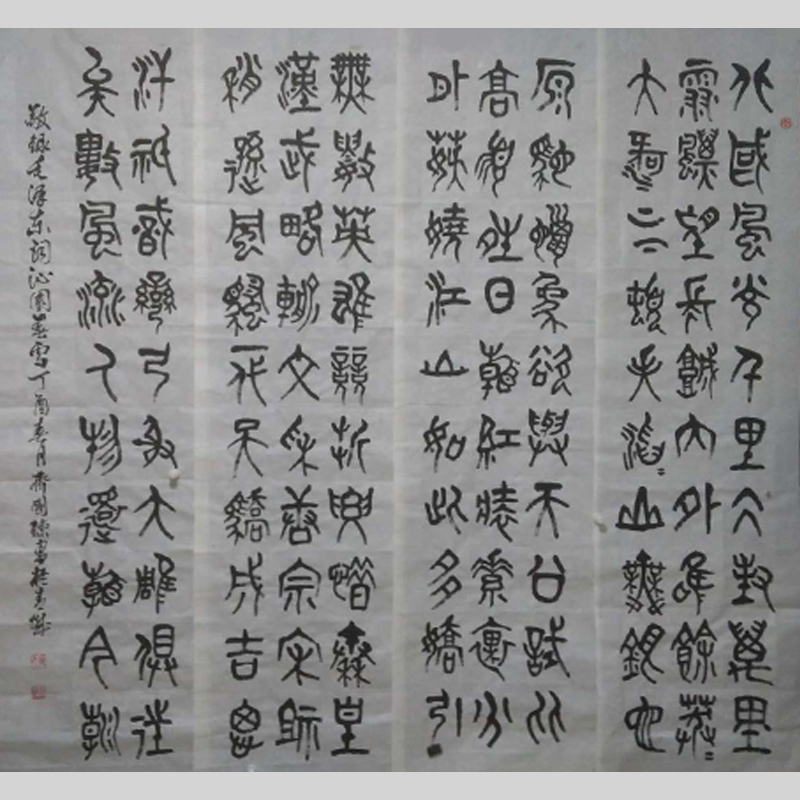 北國風光千里冰封萬里
雪飄望長城內外惟餘莽=
大河=上下頓失滔=山舞銀蛇
原馳蠟象欲與天公試比
高須晴日看紅裝素裹分
外妖嬈江山如此多嬌引
無數英雄競折腰惜秦皇
漢武略輸文采唐宗宋祖
稍遜風騷一代天驕成吉思
汗祇識彎弓射大雕俱往
矣數風流人物還看今朝
敬錄毛澤東詞沁園春雪丁酉春月